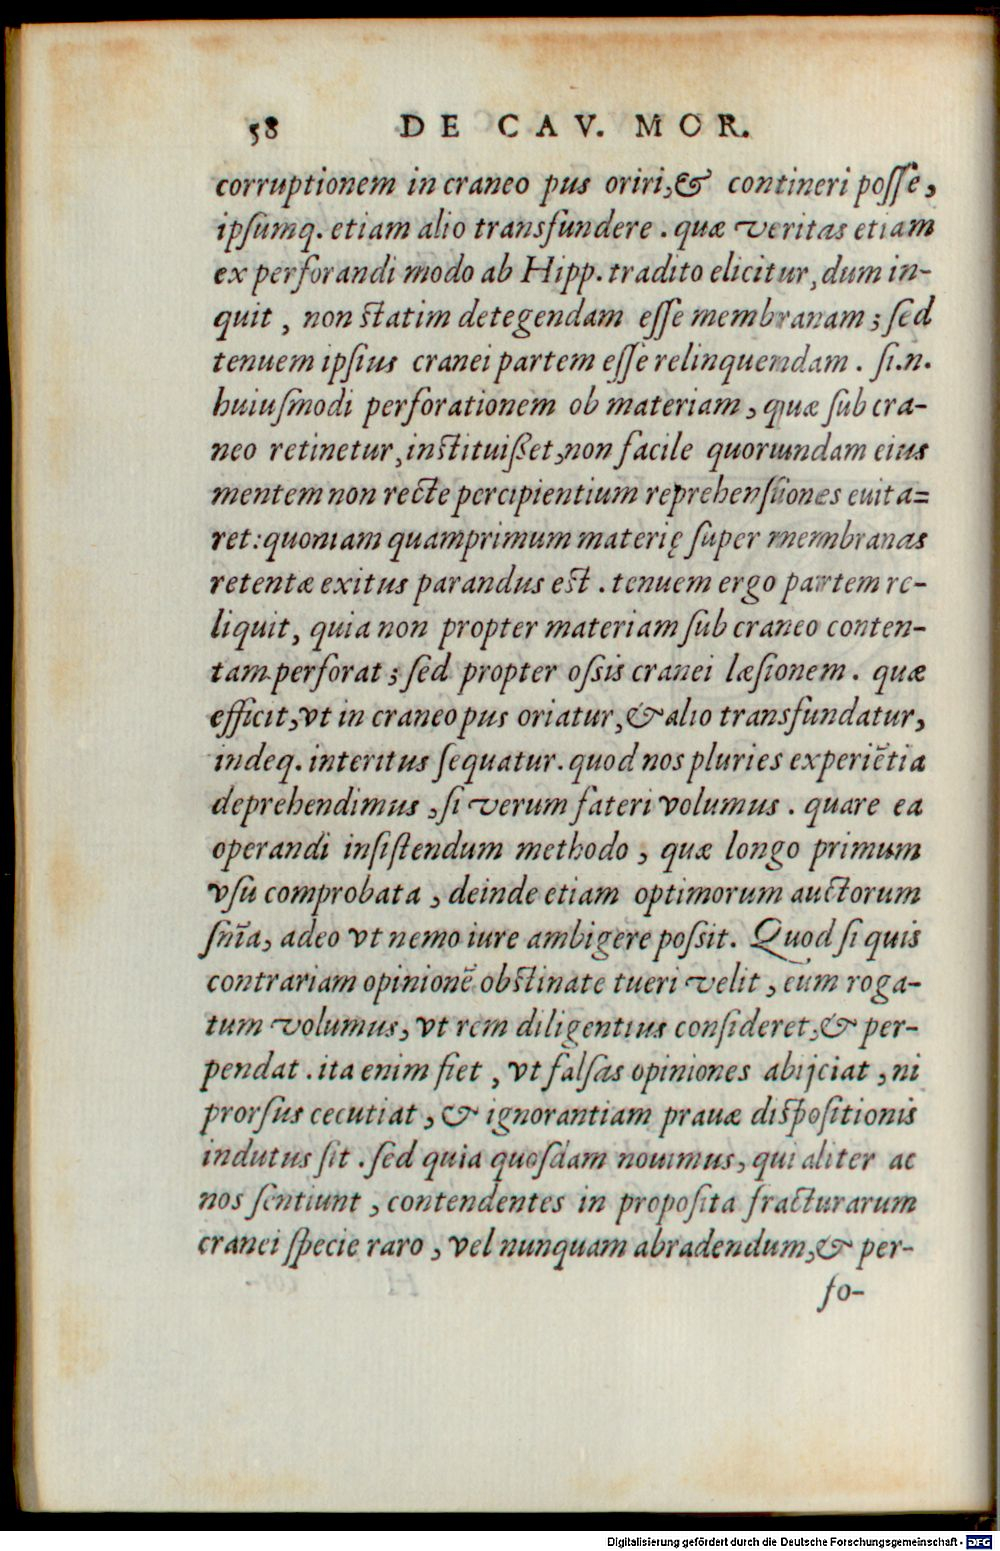 58 DE CAV. MOR.
corruptionem in craneo pus oriri, & contineri posse,
ipsumq. etiam alio transfundere. quæ veritas etiam
ex perforandi modo ab Hipp. tradito elicitur, dum in-
quit, non statim detegendam esse membranam; sed
tenuem ipsius cranei partem esse relinquendam. si.n.
huiusmodi perforationem ob materiam, quæ sub cra-
neo retinetur, instituißet, non facile quorundam eius
mentem non recte percipientium reprehensiones euita=
ret: quoniam quamprimum materię super membranas
retentæ exitus parandus est. tenuem ergo partem re-
liquit, quia non propter materiam sub craneo conten-
tam perforat; sed propter ossis cranei læsionem. quæ
efficit, vt in craneo pus oriatur, & alio transfundatur,
indeq. interitus sequatur. quod nos pluries experiẽtia
deprehendimus, si verum fateri volumus. quare ea
operandi insistendum methodo, quæ longo primum
vsu comprobata, deinde etiam optimorum auctorum
sñia, adeo vt nemo iure ambigere possit. Quod si quis
contrariam opinionẽ obstinate tueri velit, eum roga-
tum volumus, vt rem diligentius consideret, & per-
pendat. ita enim fiet, vt falsas opiniones abijciat, ni
prorsus cecutiat, & ignorantiam prauæ dispositionis
indutus sit. sed quia quosdam nouimus, qui aliter ac
nos sentiunt, contendentes in proposita fracturarum
cranei specie raro, vel nunquam abradendum, & per-
fo-
Digitalisierung gefördert durch die Deutsche Forschungsgemeinschaft - DFG